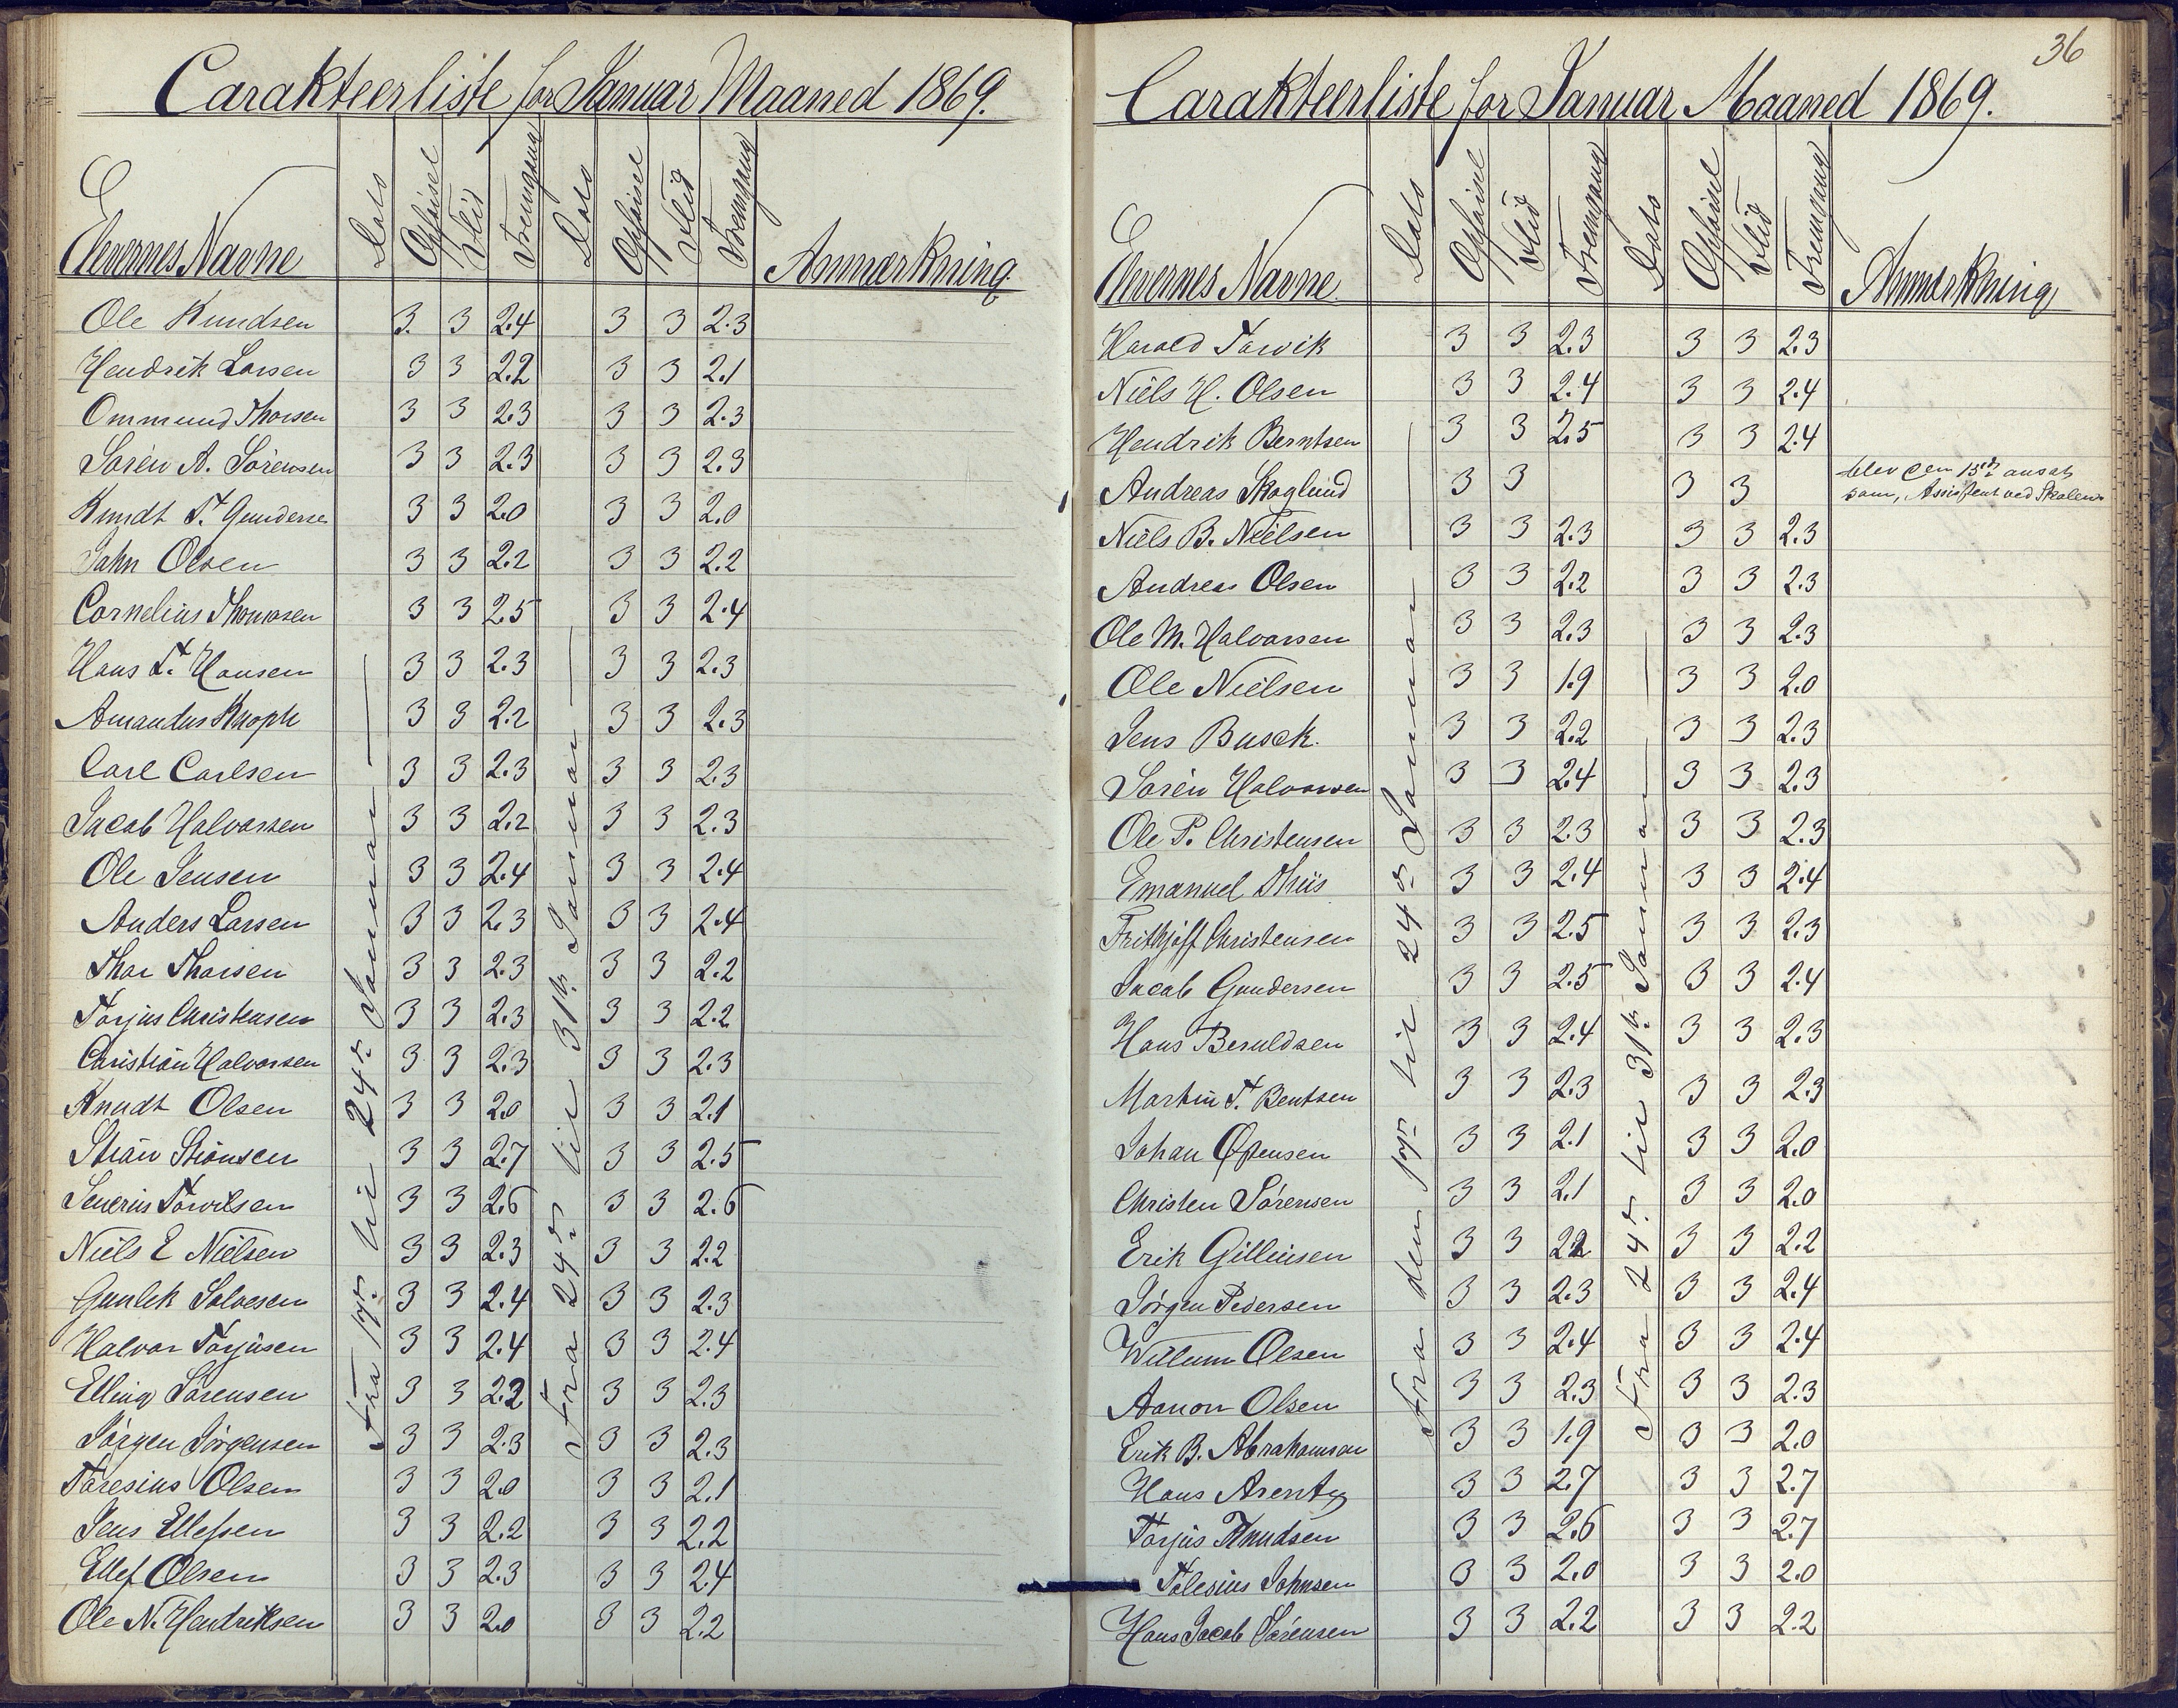 Carakteerliste for Januar Maaned 1869.
Elevernes Navne Dato Opførsel Flid Fremgang Dato Opførsel Flid Fremgang Anmærkning
Fra 17de til 24de Januar
Fra 24de til 31te Januar
Ole Knudsen 3. 3 2.4 3 3 2.3
Hendrik Larsen 3 3 2.2 3 3 2.1
Ommund Thorsen 3 3 2.3 3 3 2.3
Søren A. Sørensen 3 3 2.3 3 3 2.3
Knudt T. Gunderse 3 3 2.0 3 3 2.0
John Olsen 3 3 2.2 3 3 2.2
Cornelius Thomasen 3 3 2.5 3 3 2.4
Hans T. Hansen 3 3 2.3 3 3 2.3
Amandus Knoph 3 3 2.2 3 3 2.3
Carl Carlsen 3 3 2.3 3 3 2.3
Jacob Halvorsen 3 3 2.2 3 3 2.3
Ole Jensen 3 3 2.4 3 3 2.4
Anders Larsen 3 3 2.3 3 3 2.4
Thor Thorsen 3 3 2.3 3 3 2.2
Torjus Christensen 3 3 2.3 3 3 2.2
Christian Halvorsen 3 3 2.3 3 3 2.3
Knudt Olsen 3 3 2.0 3 3 2.1
3 3 2.7 3 3 2.5
Severin 3 3 2.6 3 3 2.6
Niels E Nielsen 3 3 2.3 3 3 2.2
Gunlek Salvesen 3 3 2.4 3 3 2.3
Halvor Torjusen 3 3 2.4 3 3 2.4
Elling Sørensen 3 3 2.2 3 3 2.3
Jørgen Jørgensen 3 3 2.3 3 3 2.3
Taresius Olsen 3 3 2.0 3 3 2.1
Jens Ellefsen 3 3 2.2 3 3 2.2
Ellef Olsen 3 3 2.3 3 3 2.4
Ole N. Hendriksen 3 3 2.0 3 3 2.2
36
Carakteerliste for Januar Maaned 1869.
Elevernes Navne Dato Opførsel Flid Fremgang Dato Opførsel Flid Fremgang Anmærkning
Fra den 17de til 24de Januar
Fra 24de til 31te Januar
Harald Tarvik 3 3 2.3 3 3 2.3
Niels H. Olsen 3 3 2.4 3 3 2.4
Hendrik Berntsen 3 3 2.5 3 3 2.4
Andreas Skoglund 3 3 3 3 blev den 15de ansat
som, Assistent ved Skolen
Niels B. Nielsen 3 3 2.3 3 3 2.3
Andreas Olsen 3 3 2.2 3 3 2.3
Ole M. Halvorsen 3 3 2.3 3 3 2.3
Ole Nielsen 3 3 1.9 3 3 2.0
Jens Busck. 3 3 2.2 3 3 2.3
Søren Halvorsen 3 3 2.4 3 3 2.3
Ole P. Christensen 3 3 2.3 3 3 2.3
Emanuel Thiis 3 3 2.4 3 3 2.4
Frithjoft Christensen 3 3 2.5 3 3 2.3
Jacob Gundersen 3 3 2.5 3 3 2.4
Hans Beruldsen 3 3 2.4 3 3 2.3
Martin T. Bentsen 3 3 2.3 3 3 2.3
Johan 3 3 2.1 3 3 2.0
Christen Sørensen 3 3 2.1 3 3 2.0
Erik Gillinsen 3 3 2.2 3 3 2.2
Jørgen Pedersen 3 3 2.3 3 3 2.4
Willum Olsen 3 3 2.4 3 3 2.4
Aanon Olsen 3 3 2.3 3 3 2.3
Erik B. Abrahamsen 3 3 1.9 3 3 2.0
Hans Arentz 3 3 2.7 3 3 2.7
Torjus Knudsen 3 3 2.6 3 3 2.7
Tolesius Johnsen 3 3 2.0 3 3 2.0
Hans Jacob Sørensen 3 3 2.2 3 3 2.2